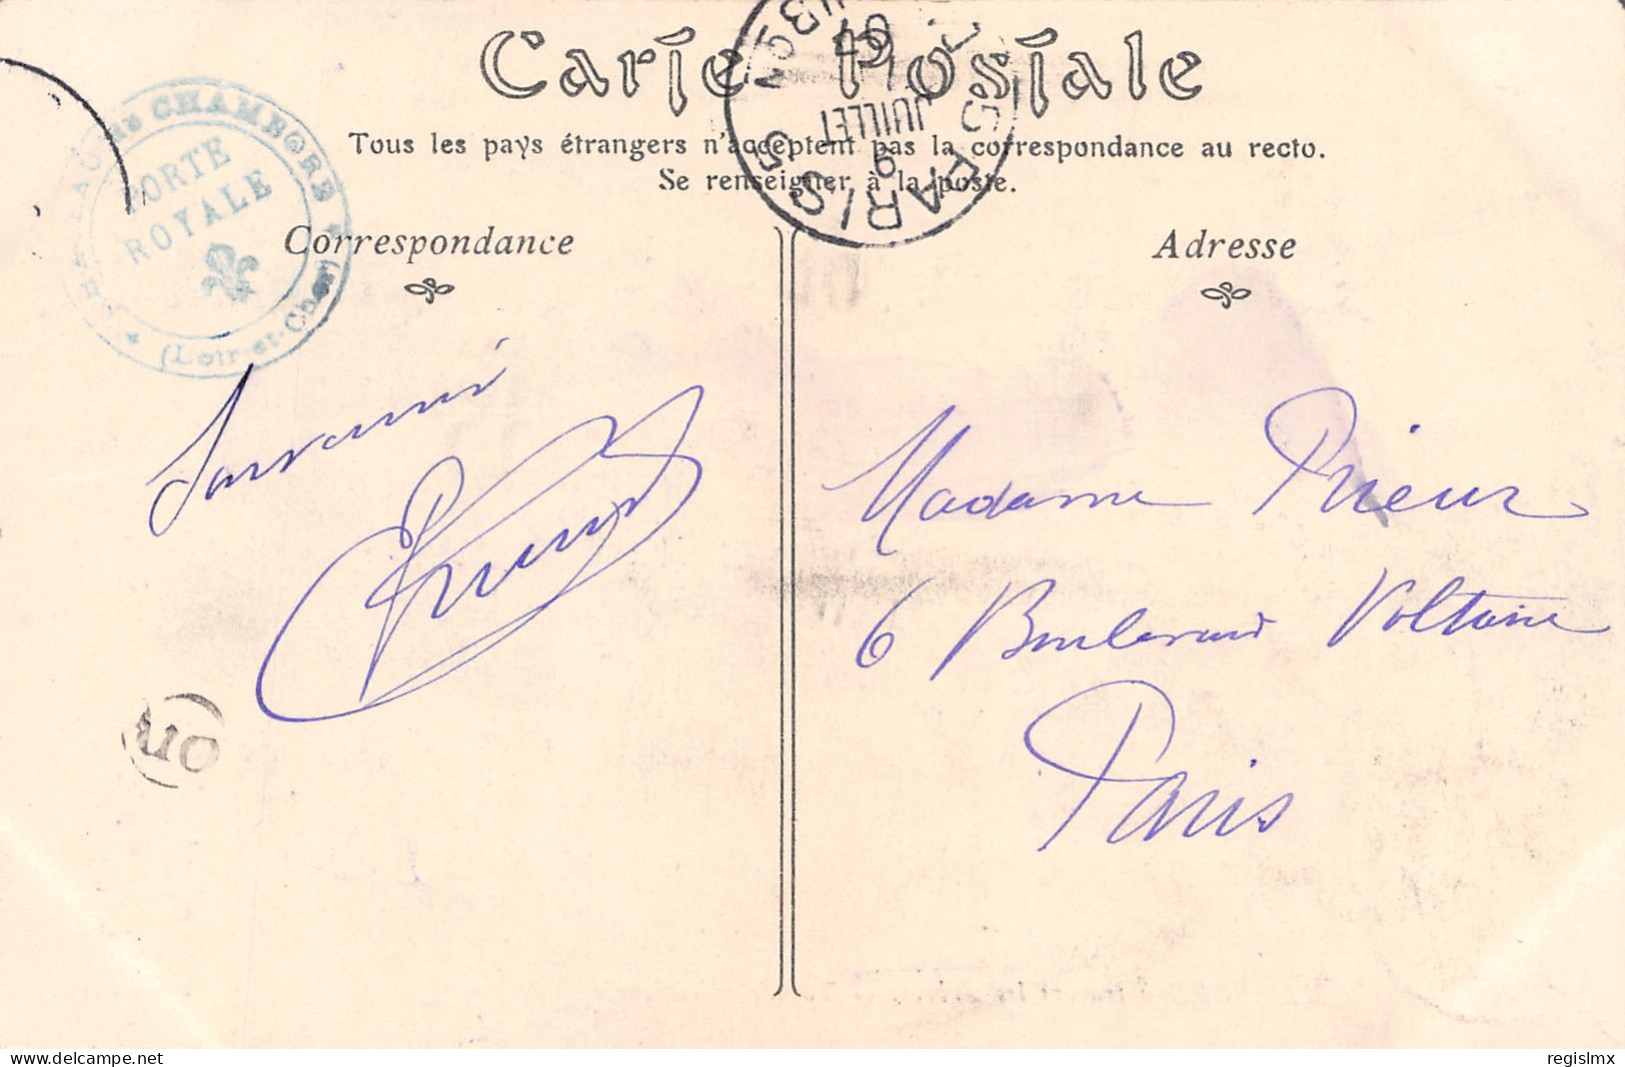 Carte Postale
Tous les pays étrangers n'acceptent pas la correspondance au recto.
Se renseigner à la poste.
CHAMBORD
PORTE
ROYALE
(Loir-et-Cher)
PARIS
9
JUILLET
07
Correspondance
Adresse
Madame Prieur
6 Boulevard Voltaire
Paris
OR
delcampe.net
regislmx